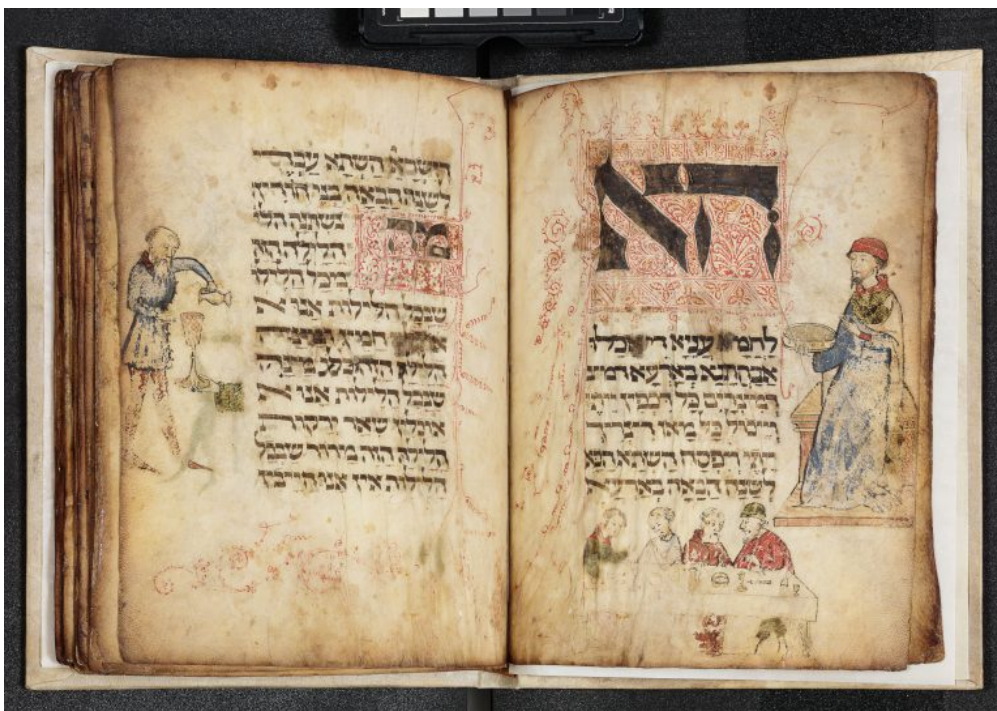 הא
לחמא עניא די אכלו
אבהתנא בארעא דמיצ
דמיצרים כל דכפין ייתי
וייכול כל מאן דצריך
ייתי ויפסח השתא הכא
לשנה הבאה בארעא
השתא עבדי
לשנה הבאה בני חורין
מה נשתנה הלי
הלילה הזה
מכל הלילות
שבכל הלילות אנו
אוכלין חמיץ
הלילה הזה כולו מצה
שבכל הלילות אנו
אוכלין שאר ירקות
הלילה הזה מרור שבכל
הלילות אין אנו חייבין